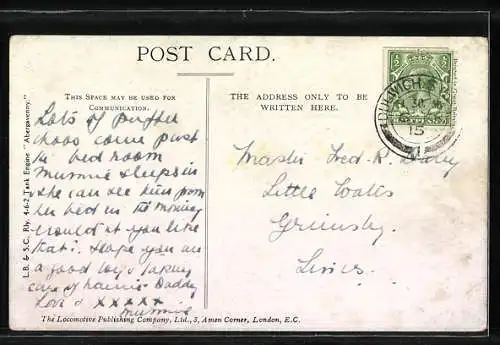 POST CARD.
THIS SPACE MAY BE USED FOR
COMMUNICATION.
Lots of puffer
choos come past
the bed room
mummie sleeps in
she can see him from
her bed in the morning
wouldn't you like
that. Hope you are
a good boy & taking
care of Daddy
Love & xxxxx
Mummie
THE ADDRESS ONLY TO BE
WRITTEN HERE.
Fred. R.
Little Coates
Grimsby.
Lincs.
DULWICH
30
15
L.B. & S.C. Rly. 4-6-2 Tank Engine "Abergavenny."
The Locomotive Publishing Company, Ltd., 3, Amen Corner, London, E.C.